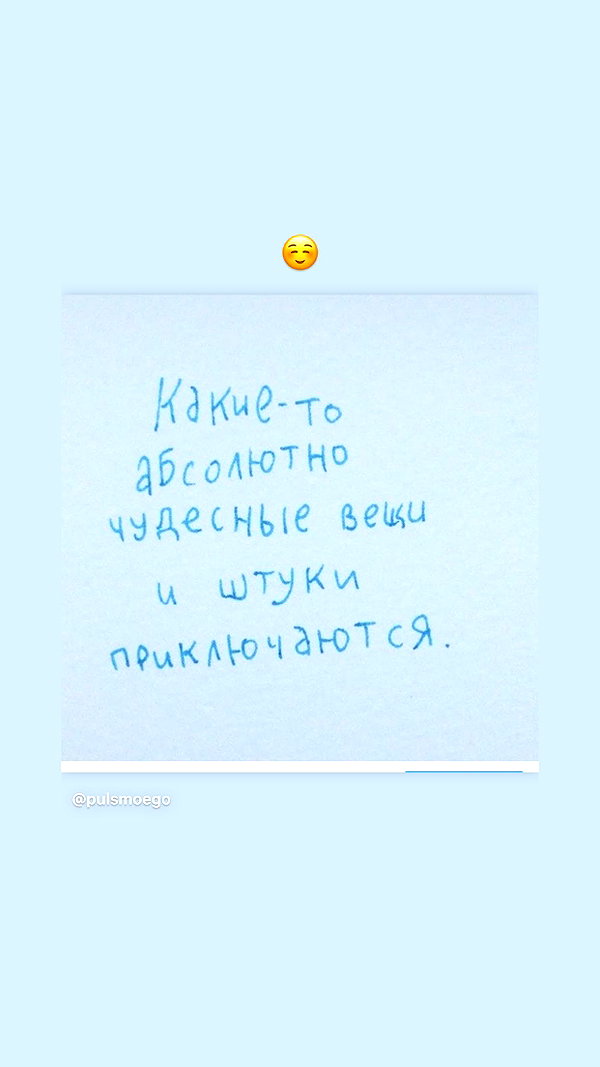 Какие-то
абсолютно
чудесные вещи
и штуки
приключаются.
@pulsmoego